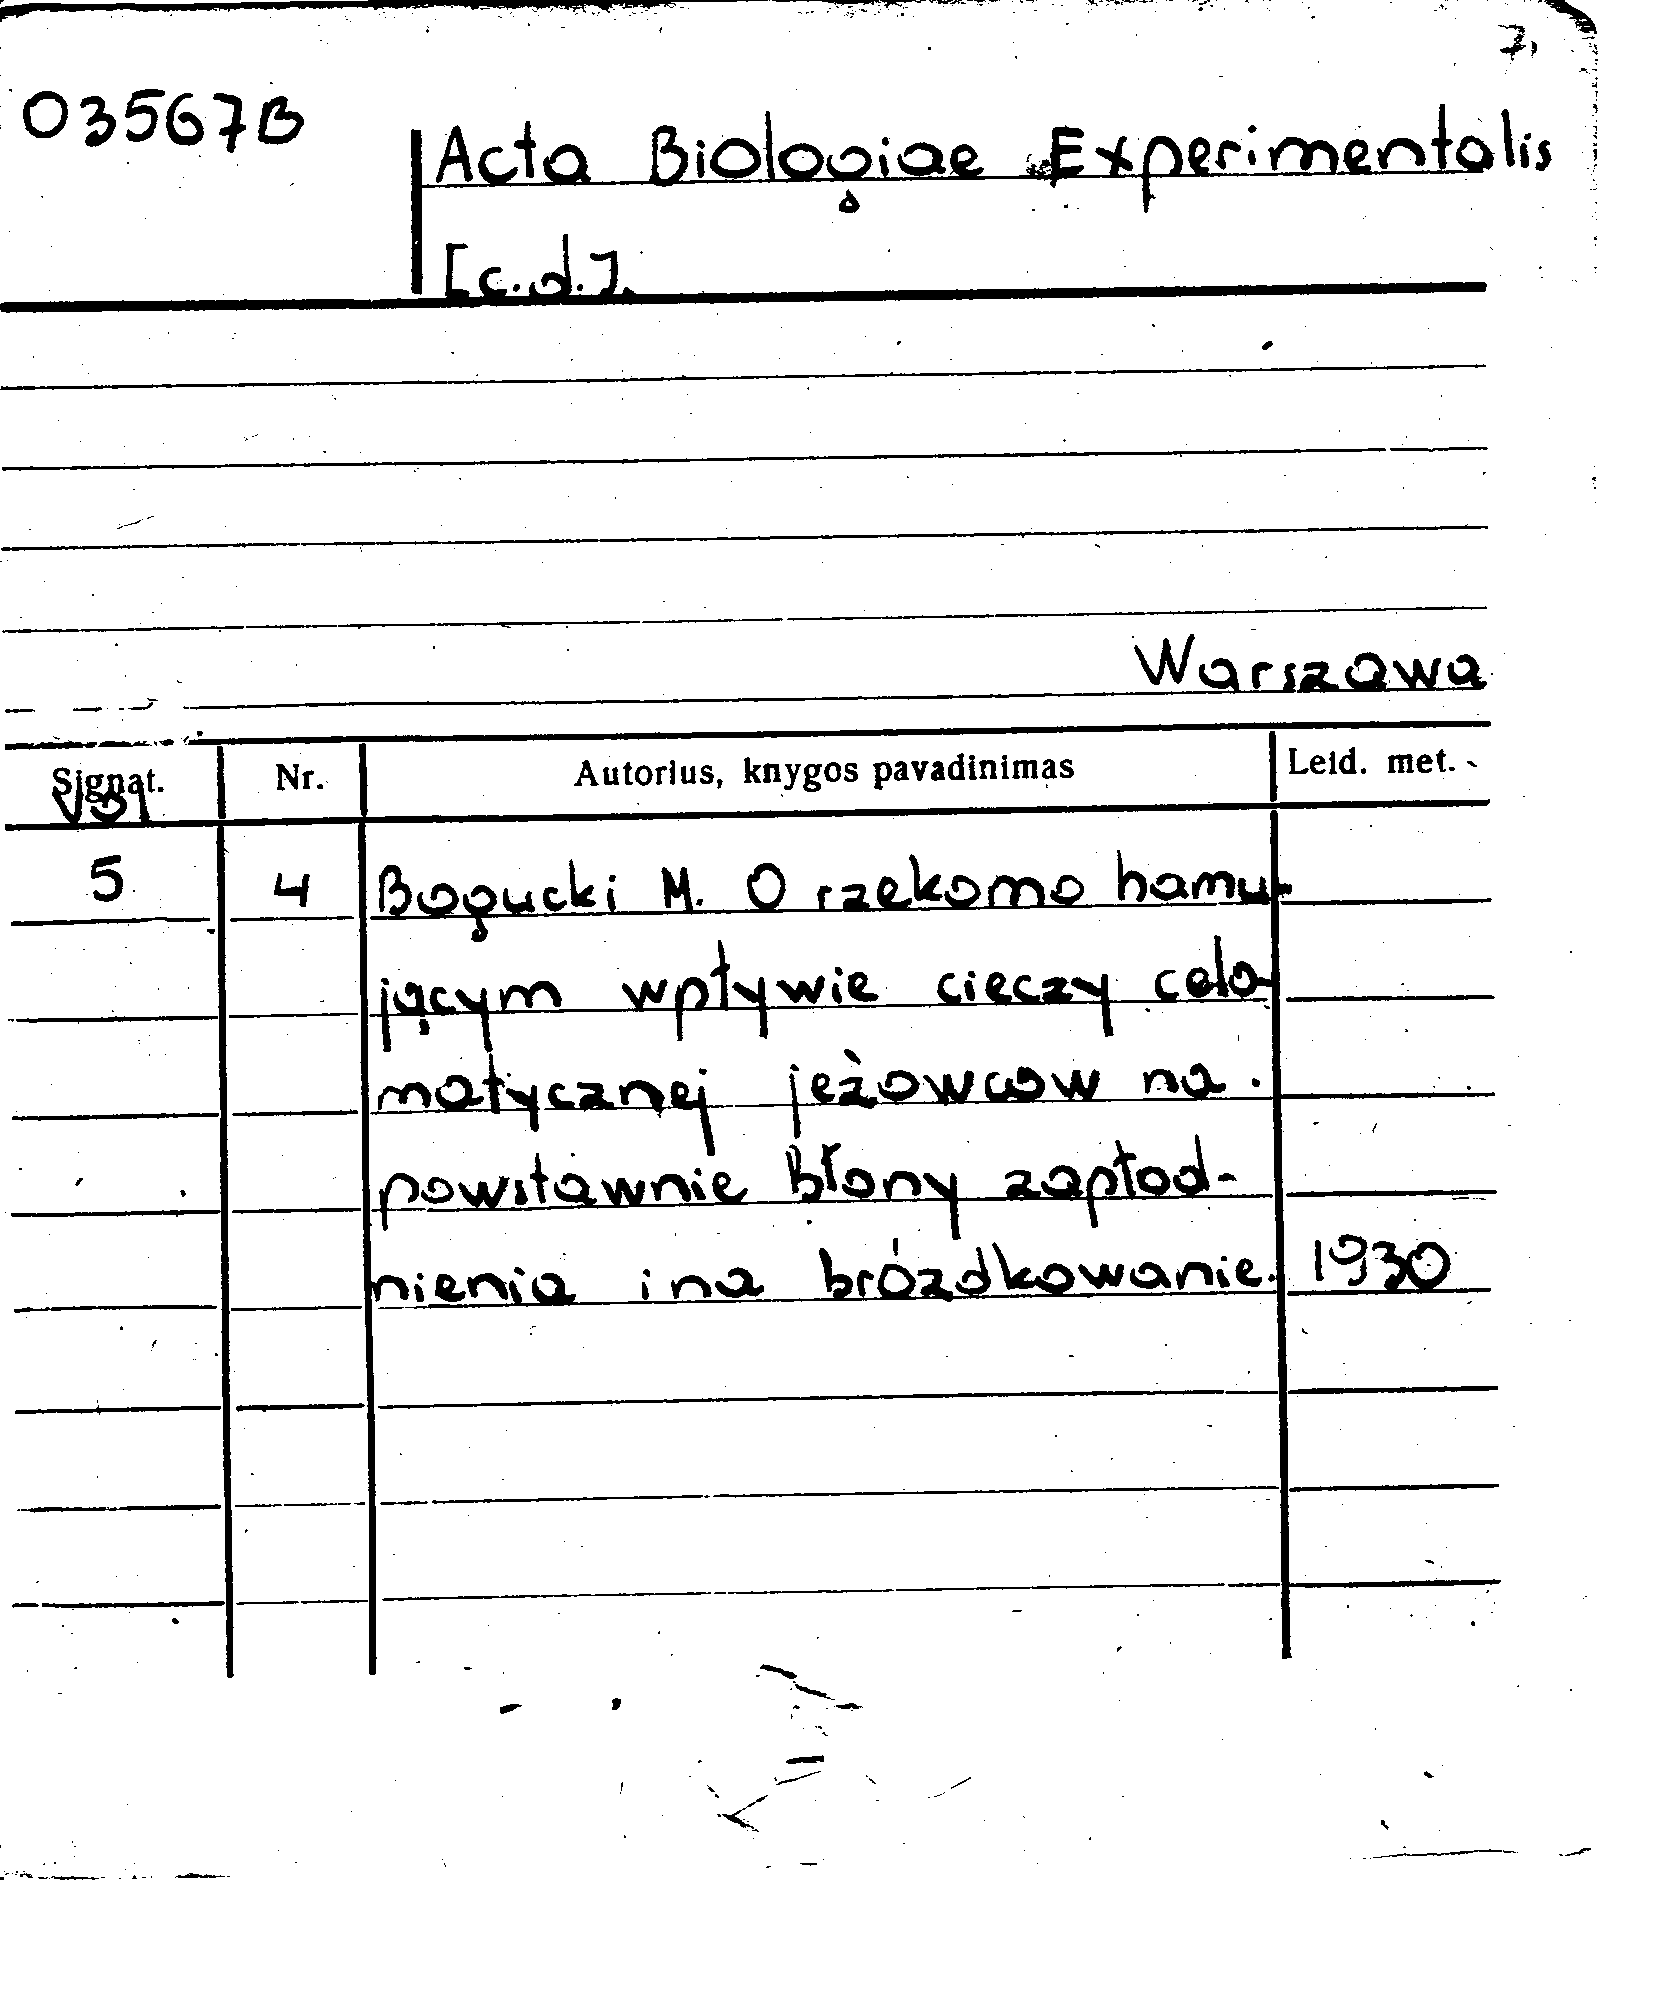 7,
03567B
Acta Biologiae Experimentalis
[c.d.].
Warszawa
Signat. Nr. Autorius, knygos pavadinimas Leid. met.
Vol
5 4 Bogucki M. O rzekomo hamu-
jącym wpływie cieczy celo-
matycznej jeżowcow na
powstawnie błony zapłod-
nienia i na brózdkowanie. 1930